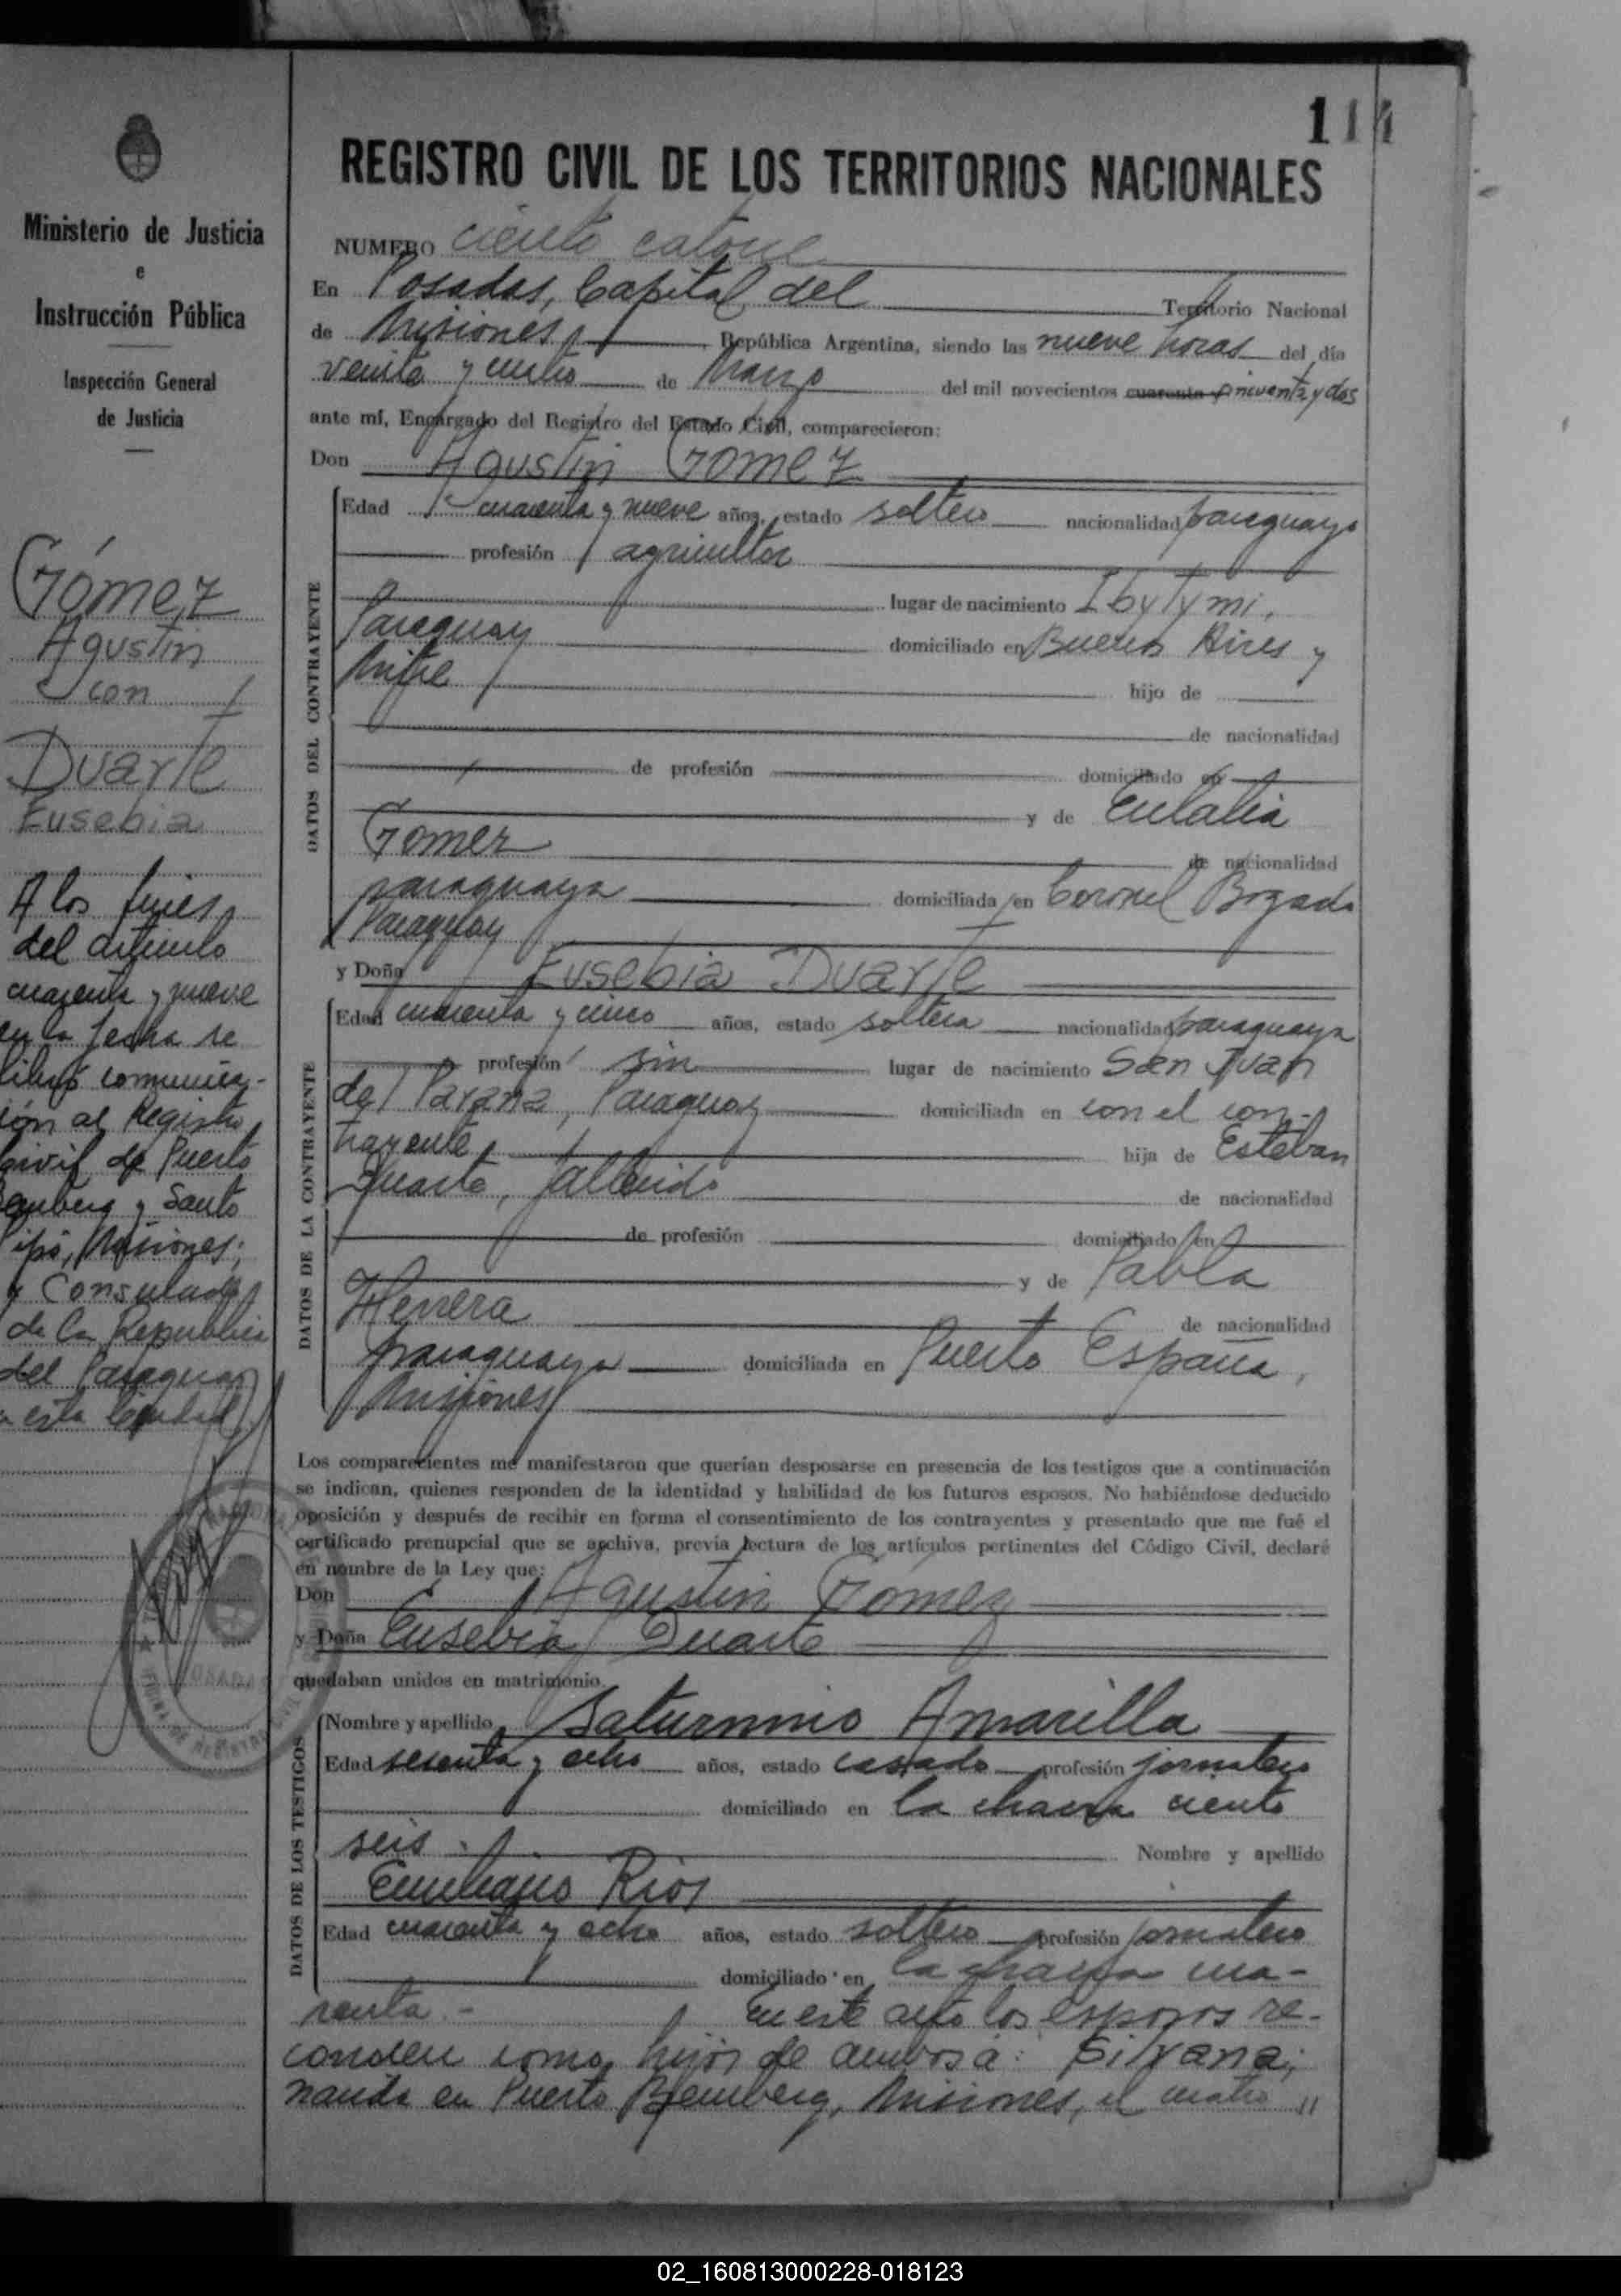 114
REGISTRO CIVIL DE LOS TERRITORIOS NACIONALES
Ministerio de Justicia
e
Instrucción Pública
Inspección General
de Justicia
Gómez
Agustin
con
Duarte
Eusebia
A los fines
del artículo
cuarenta y nueve
en la fecha se
libró comunica-
ión al Registro
Civil de Puerto
emberg y Santo
ipó, Misiones;
y Consulado
de la Republica
del Paraguay
esta
NUMERO ciento catorce
En Posadas, Capital del Territorio Nacional
de Misiones, República Argentina, siendo las nueve horas del día
veinte y cuatro de Marzo del mil novecientos cuarenta y cincuenta y dos
ante mí, Encargado del Registro del Estado Civil, comparecieron:
Don Agustin Gomez
DATOS DEL CONTRAYENTE
Edad cuarenta y nueve años, estado soltero nacionalidad paraguayo
profesión agricultor
lugar de nacimiento Ibytymi,
Paraguay domiciliado en Buenos Aires y
Mitre hijo de
de nacionalidad
de profesión domiciliado en
y de Eulalia
Gomez de nacionalidad
paraguaya domiciliada en Coronel Bogado
Paraguay
y Doña Eusebia Duarte
DATOS DE LA CONTRAYENTE
Edad cuarenta y cinco años, estado soltera nacionalidad paraguaya
profesión sin lugar de nacimiento San Juan
del Parana, Paraguay domiciliada en con el con-
trayente, hija de Esteban
Duarte, fallecido de nacionalidad
de profesión domiciliado en
y de Pabla
Herrera de nacionalidad
paraguaya domiciliada en Puerto España,
Misiones
Los comparecientes me manifestaron que querían desposarse en presencia de los testigos que a continuación
se indican, quienes responden de la identidad y habilidad de los futuros esposos. No habiéndose deducido
oposición y después de recibir en forma el consentimiento de los contrayentes y presentado que me fué el
certificado prenupcial que se archiva, previa lectura de los artículos pertinentes del Código Civil, declaré
en nombre de la Ley que:
Don Agustin Gómez
y Doña Eusebia Duarte
quedaban unidos en matrimonio.
DATOS DE LOS TESTIGOS
Nombre y apellido Saturnino Amarilla
Edad sesenta y ocho años, estado casado profesión jornalero
domiciliado en la chacra ciento
seis. Nombre y apellido
Emiliano Rios
Edad cuarenta y ocho años, estado soltero profesión jornalero
domiciliado en la chacra cua-
renta.- En este acto los esposos re-
conocen como hijos de ambos a: Silvana;
nacida en Puerto Bemberg, Misiones, el cuatro "
02_160813000228-018123